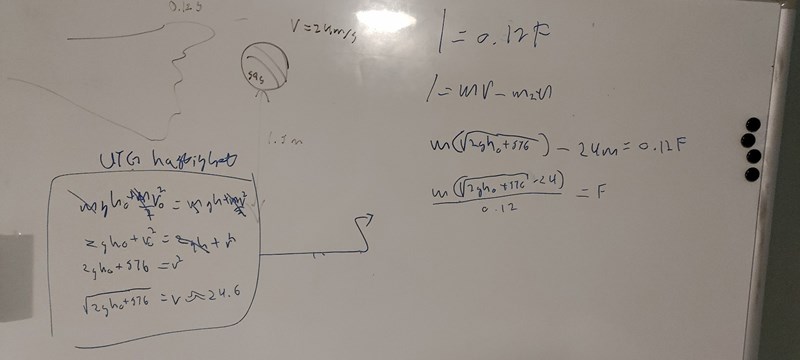 0.12s
V = 24m/s
1.5m
UTG hastighet
mgh₀ + mv₀²/2 = mgh + mv²/2
2gh₀ + v₀² = 2gh + v²
2gh₀ + 576 = v²
√(2gh₀ + 576) = v ≈ 24.6
I = 0.12F
I = mv - m₂u
m(√(2gh₀ + 576)) - 24m = 0.12F
m(√(2gh₀ + 576) - 24)/0.12 = F